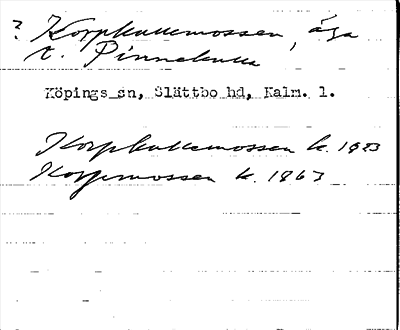 ? Korpkullemossen, äga
t. Pinnekulla
Köpings sn, Slättbo hd, Kalm. l.
Korpkullemossen k. 1923
Korpemossen k. 1863